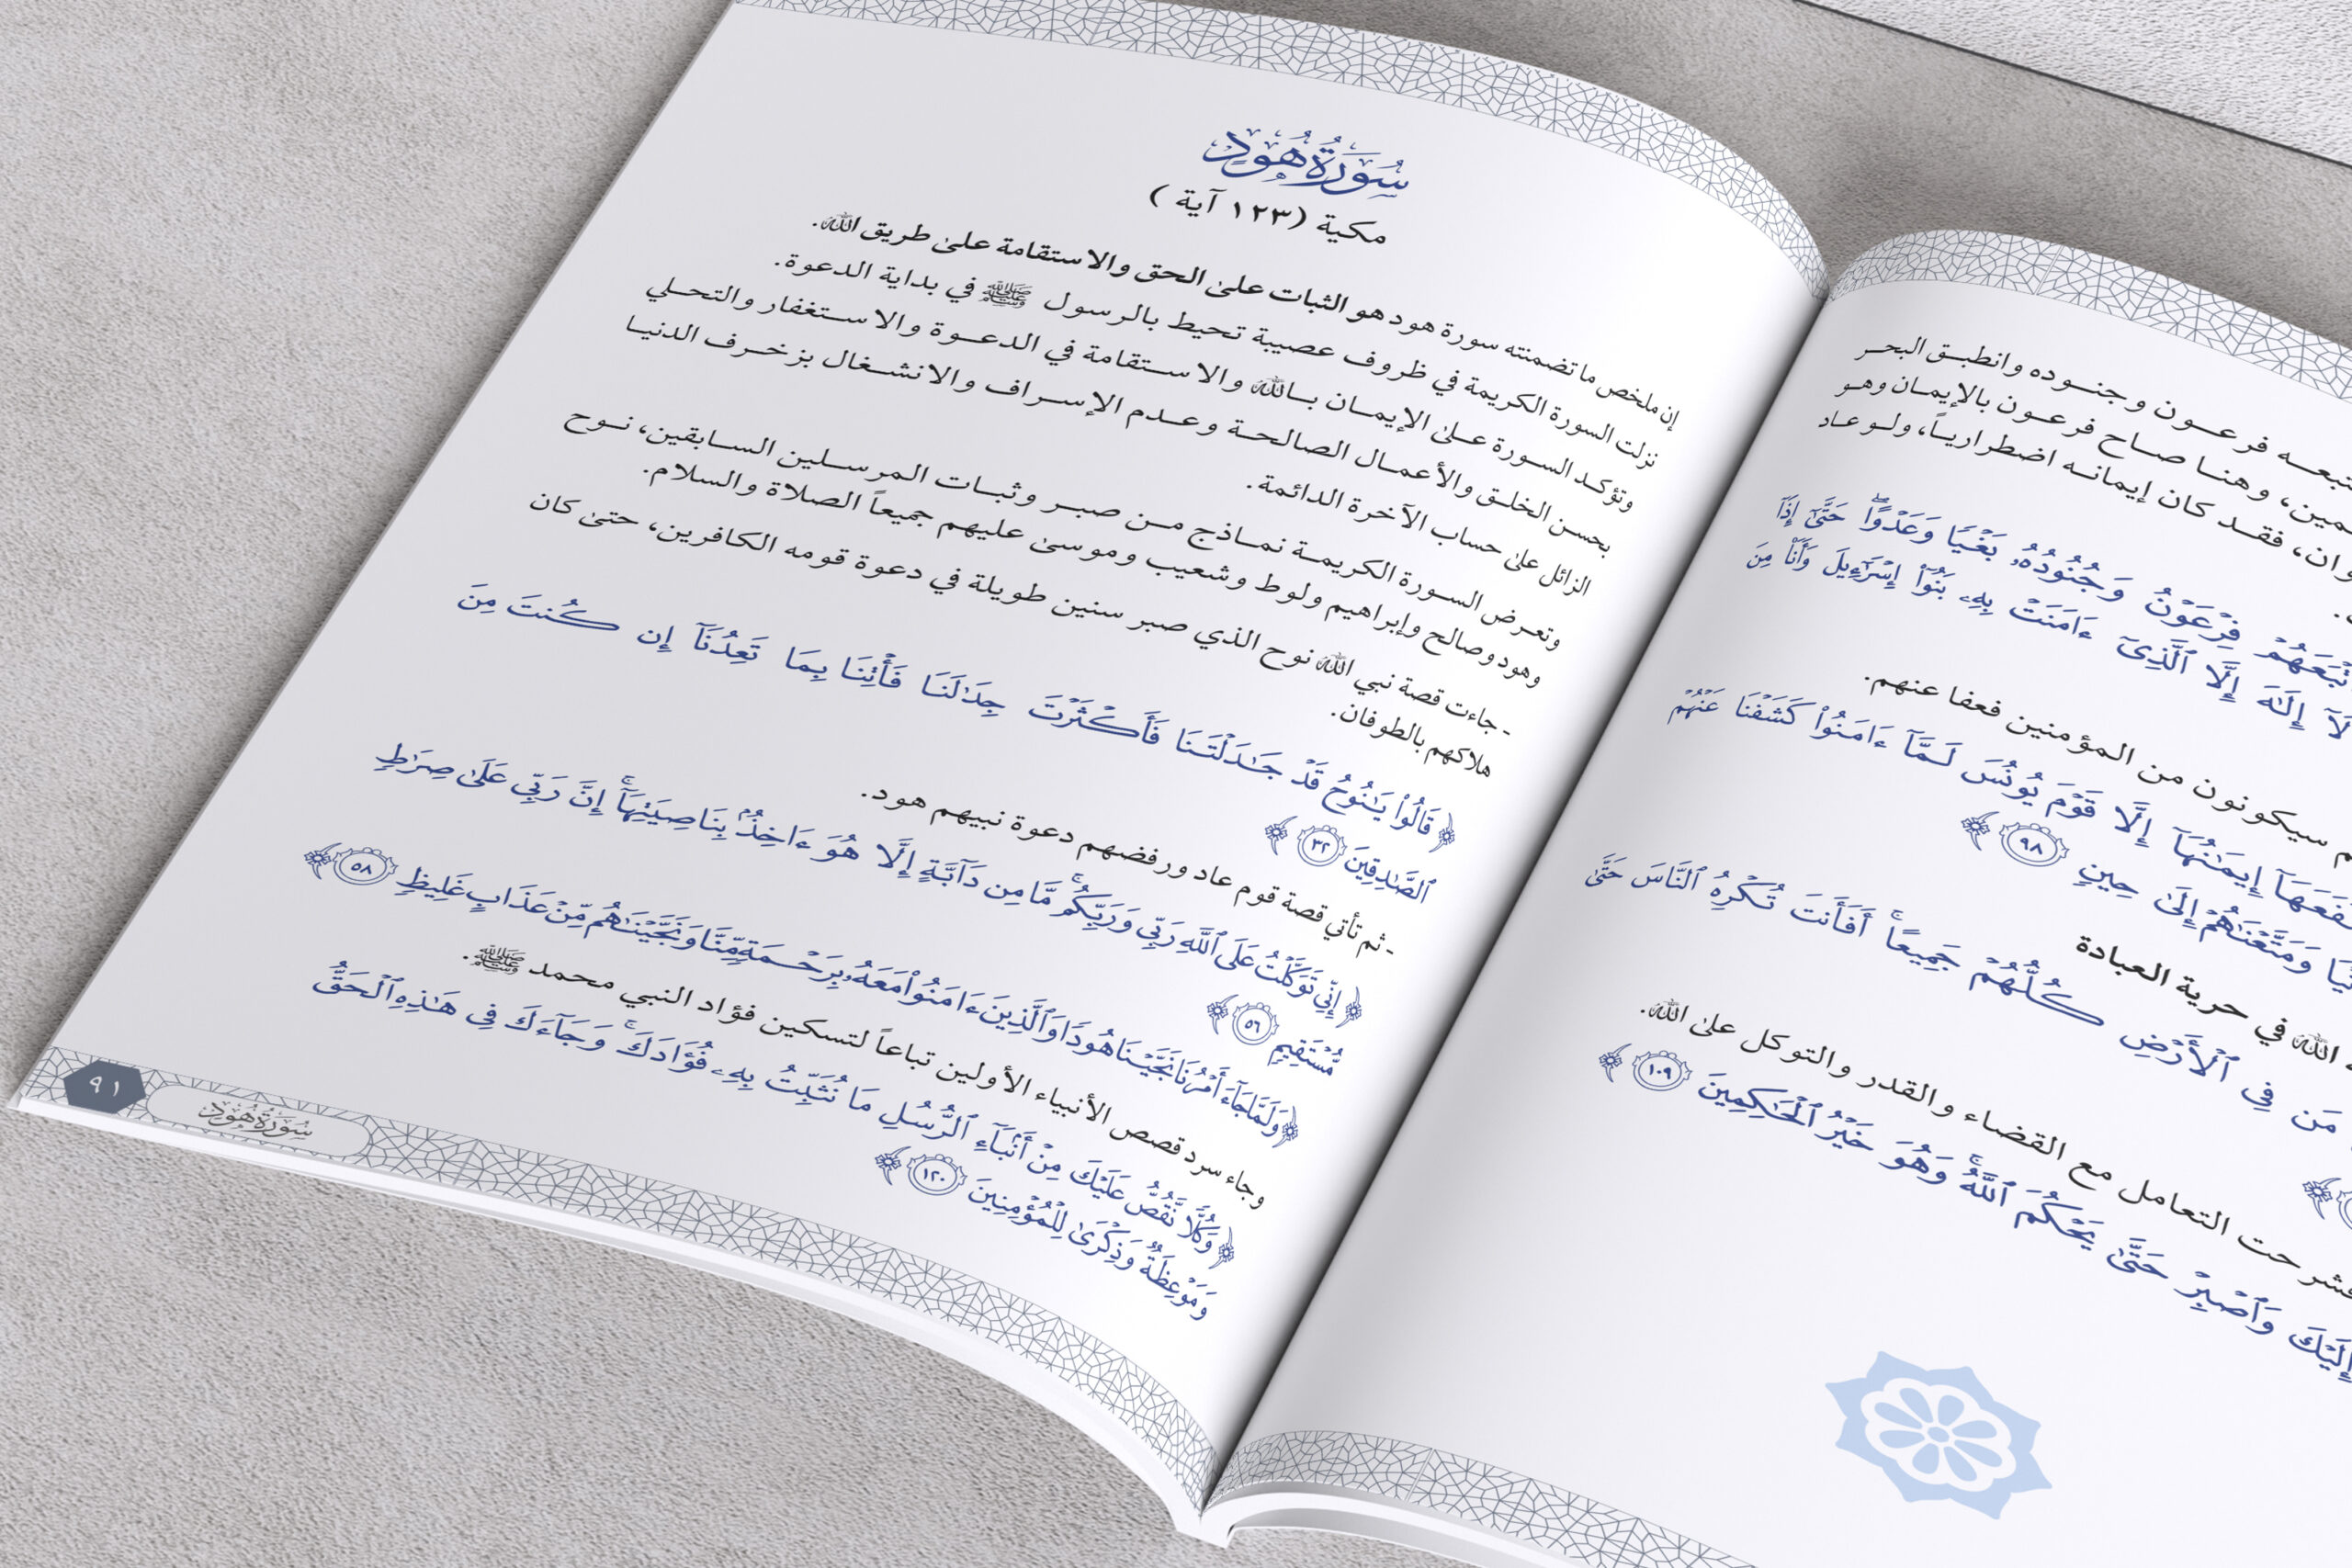 فرعون وجنوده وانطبق البحر
وهنا صاح فرعون بالإيمان وهو
فقد كان إيمانه اضطرارياً، ولو عاد
فِرْعَوْنُ وَجُنُودُهُۥ بَغْيًا وَعَدْوًا ۖ حَتَّىٰٓ إِذَآ
لَآ إِلَٰهَ إِلَّا ٱلَّذِىٓ ءَامَنَتْ بِهِۦ بَنُوٓا۟ إِسْرَٰٓءِيلَ وَأَنَا۠ مِنَ
سيكونون من المؤمنين فعفا عنهم.
إِيمَٰنُهَآ إِلَّا قَوْمَ يُونُسَ لَمَّآ ءَامَنُوا۟ كَشَفْنَا عَنْهُمْ
وَمَتَّعْنَٰهُمْ إِلَىٰ حِينٍ ٩٨ ﴾
الله في حرية العبادة
مَن فِى ٱلْأَرْضِ كُلُّهُمْ جَمِيعًا ۚ أَفَأَنتَ تُكْرِهُ ٱلنَّاسَ حَتَّىٰ
التعامل مع القضاء والقدر والتوكل على الله.
إِلَيْكَ وَٱصْبِرْ حَتَّىٰ يَحْكُمَ ٱللَّهُ ۚ وَهُوَ خَيْرُ ٱلْحَٰكِمِينَ ١٠٩ ﴾
سُورَةُ هُودٍ
مكية (١٢٣ آية )
إن ملخص ما تضمنته سورة هود هو الثبات على الحق والاستقامة على طريق الله.
نزلت السورة الكريمة في ظروف عصيبة تحيط بالرسول ﷺ في بداية الدعوة.
وتؤكد السورة على الإيمان بالله والاستقامة في الدعوة والاستغفار والتحلي
بحسن الخلق والأعمال الصالحة وعدم الإسراف والانشغال بزخرف الدنيا
الزائل على حساب الآخرة الدائمة.
وتعرض السورة الكريمة نماذج من صبر وثبات المرسلين السابقين، نوح
وهود وصالح وإبراهيم ولوط وشعيب وموسى عليهم جميعاً الصلاة والسلام.
- جاءت قصة نبي الله نوح الذي صبر سنين طويلة في دعوة قومه الكافرين، حتى كان
هلاكهم بالطوفان.
﴿ قَالُوا۟ يَٰنُوحُ قَدْ جَٰدَلْتَنَا فَأَكْثَرْتَ جِدَٰلَنَا فَأْتِنَا بِمَا تَعِدُنَآ إِن كُنتَ مِنَ
ٱلصَّٰدِقِينَ ٣٢ ﴾
- ثم تأتي قصة قوم عاد ورفضهم دعوة نبيهم هود.
﴿ إِنِّى تَوَكَّلْتُ عَلَى ٱللَّهِ رَبِّى وَرَبِّكُم ۚ مَّا مِن دَآبَّةٍ إِلَّا هُوَ ءَاخِذٌۢ بِنَاصِيَتِهَآ ۚ إِنَّ رَبِّى عَلَىٰ صِرَٰطٍ
مُّسْتَقِيمٍ ٥٦ ﴾
﴿ وَلَمَّا جَآءَ أَمْرُنَا نَجَّيْنَا هُودًا وَٱلَّذِينَ ءَامَنُوا۟ مَعَهُۥ بِرَحْمَةٍ مِّنَّا وَنَجَّيْنَٰهُم مِّنْ عَذَابٍ غَلِيظٍ ٥٨ ﴾
وجاء سرد قصص الأنبياء الأولين تباعاً لتسكين فؤاد النبي محمد ﷺ.
﴿ وَكُلًّا نَّقُصُّ عَلَيْكَ مِنْ أَنۢبَآءِ ٱلرُّسُلِ مَا نُثَبِّتُ بِهِۦ فُؤَادَكَ ۚ وَجَآءَكَ فِى هَٰذِهِ ٱلْحَقُّ
وَمَوْعِظَةٌ وَذِكْرَىٰ لِلْمُؤْمِنِينَ ١٢٠ ﴾
سُورَةُ هُودٍ
٩١